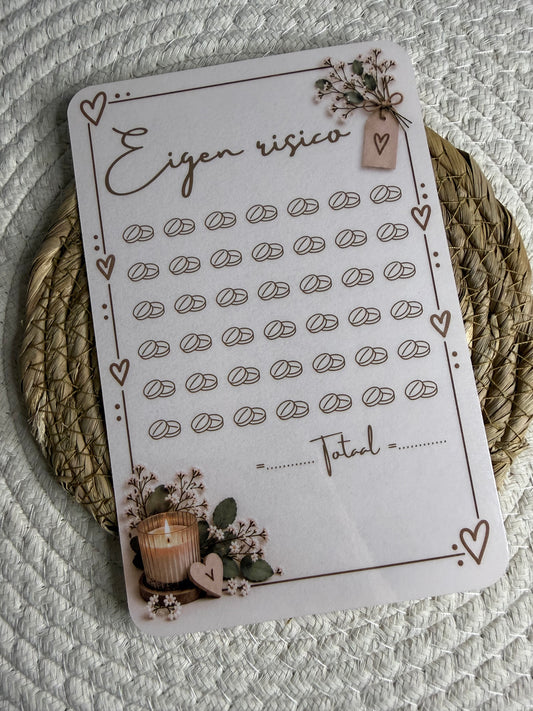 Eigen risico
=............ Totaal =............